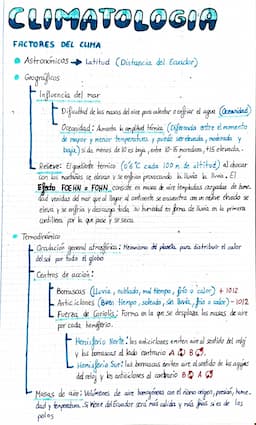 CLIMATOLOGIA
FACTORES DEL CLIMA
Astronómicos → Latitud (Distancia del Ecuador)
Geográficos
Influencia del mar
Dificultad de las masas del aire para calentar o enfriar el agua (Oceanidad)
Oceanidad: Aumenta la amplitud térmica (Diferencia entre el momento
de mayor y menor temperatura y puede ser elevada, moderada y
baja) si da menos de 10 es baja, entre 10-15 moderada, +15 elevada.
Relieve: El gradiente térmico (0'6°C cada 100 m de altitud) al chocar
con las montañas se elevan y se enfrían provocando la lluvia. El
Efecto FOEHN o FOHN consiste en masas de aire templadas cargadas de hume
dad venidas del mar que al llegar al continente se encuentra con un relieve elevado se
eleva y se enfría y descarga toda su humedad en forma de lluvia en la primera
cordillera por la que pase y se seca.
Termodinámico
Circulación general atmosférica: Mecanismo del planeta para distribuir el calor
del sol por todo el globo
Centros de acción:
Borrascas (Lluvia, nublado, mal tiempo, frío o calor) + 1012
Anticiclones (Buen tiempo, soleado, sin lluvia, frío o calor) - 1012
Fuerza de Coriolis: Forma en la que se desplaza las masas de aire
por cada hemisferio.
Hemisferio Norte: los anticiclones envían aire al sentido del reloj
y las borrascas al lado contrario A B
Hemisferio Sur: las borrascas envían aire al sentido de las agujas
del reloj y los anticiclones al contrario B A
Masas de aire: Volúmenes de aire homogéneos con el mismo origen, presión, hume
dad y temperatura. Si viene del Ecuador será más calida y más frías si es de los
polos